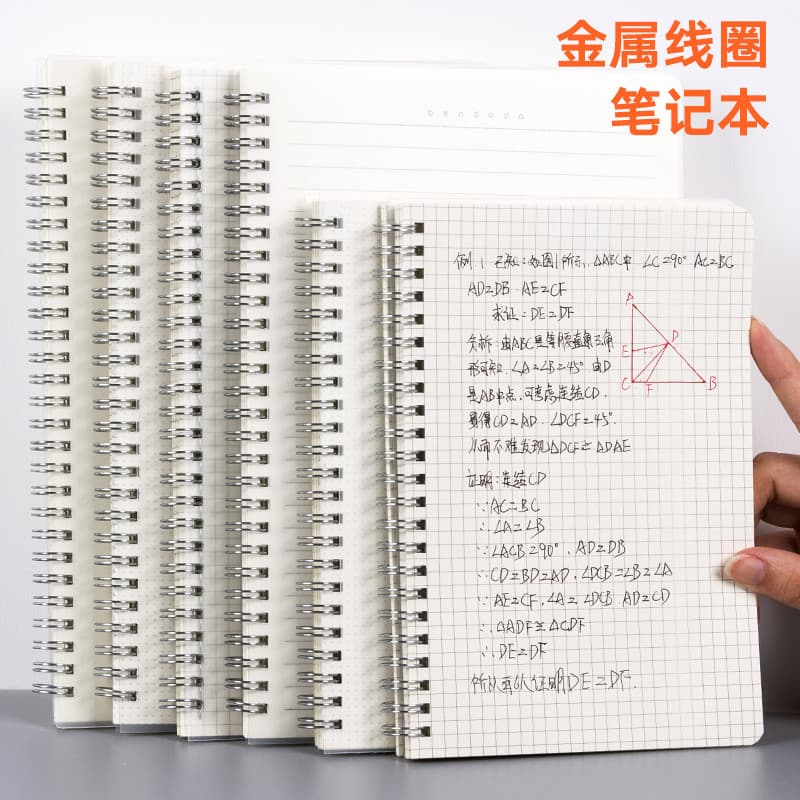 金属线圈
笔记本
bendodo
例1 已知:如图1所示,△ABC中 ∠C=90° AC=BC
AD=DB AE=CF
求证:DE=DF
A
分析:由ABC是等腰直角三角
D
E
形可知,∠A=∠B=45° 由D
C F B
是AB中点,可考虑连结CD,
易得CD=AD,∠DCF=45°.
从而不难发现△DCF≅△DAE
证明:连结CD
∵AC=BC
∴∠A=∠B
∵∠ACB=90°,AD=DB
∴CD=BD=AD,∠DCB=∠B=∠A
∵AE=CF,∠A=∠DCB AD=CD
∴△ADF≅△CDF
∴DE=DF
所以可以证明DE=DF.